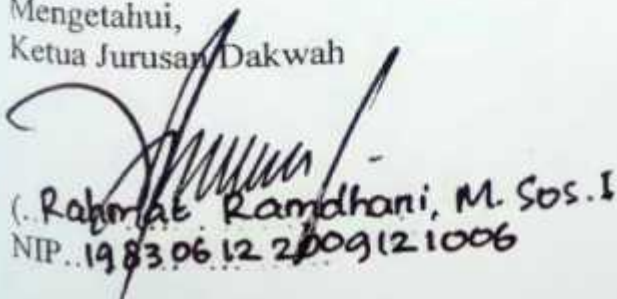 Mengetahui,
Ketua Jurusan Dakwah
(. Rahmat Ramdhani, M. Sos. I
NIP..19830612 2009121006